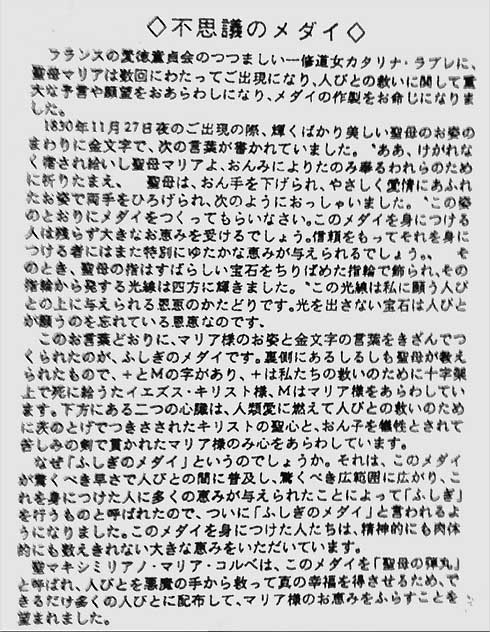 ◇不思議のメダイ◇
フランスの愛徳童貞会のつつましい一修道女カタリナ・ラブレに、
聖母マリアは数回にわたってご出現になり、人びとの救いに関して重
大な予言や願望をおあらわしになり、メダイの作製をお命じになりま
した。
1830年11月27日夜のご出現の際、輝くばかり美しい聖母のお姿の
まわりに金文字で、次の言葉が書かれていました。〝ああ、けがれな
く宿され給いし聖母マリアよ、おんみによりたのみ奉るわれらのため
に祈りたまえ、 聖母は、おん手を下げられ、やさしく愛情にあふれ
たお姿で両手をひろげられ、次のようにおっしゃいました。〝この姿
のとおりにメダイをつくってもらいなさい。このメダイを身につける
人は残らず大きなお恵みを受けるでしょう。信頼をもってそれを身に
つける者にはまた特別にゆたかな恵みが与えられるでしょう。、 そ
のとき、聖母の指はすばらしい宝石をちりばめた指輪で飾られ、その
指輪から発する光線は四方に輝きました。〝この光線は私に願う人び
との上に与えられる恩恵のかたどりです。光を出さない宝石は人びと
が願うのを忘れている恩恵なのです、
このお言葉どおりに、マリア様のお姿と金文字の言葉をきざんでつ
くられたのが、ふしぎのメダイです。裏側にあるしるしも聖母が教え
られたもので、+とMの字があり、+は私たちの救いのために十字架
上で死に給うたイエズス・キリスト様、Mはマリア様をあらわしてい
ます。下方にある二つの心臓は、人類愛に燃えて人びとの救いのため
に茨のとげでつきさされたキリストの聖心と、おん子を犠牲とされて
苦しみの剣で貫かれたマリア様のみ心をあらわしています。
なぜ「ふしぎのメダイ」というのでしょうか。それは、このメダイ
が驚くべき早さで人びとの間に普及し、驚くべき広範囲に広がり、こ
れを身につけた人に多くの恵みが与えられたことによって「ふしぎ」
を行うものと呼ばれたので、ついに「ふしぎのメダイ」と言われるよ
うになりました。このメダイを身につけた人たちは、精神的にも肉体
的にも数えきれない大きな恵みをいただいています。
聖マキシミリアノ・マリア・コルベは、このメダイを「聖母の弾丸」
と呼ばれ、人びとを悪魔の手から救って真の幸福を得させるため、で
きるだけ多くの人びとに配布して、マリア様のお恵みをふらすことを
望まれました。